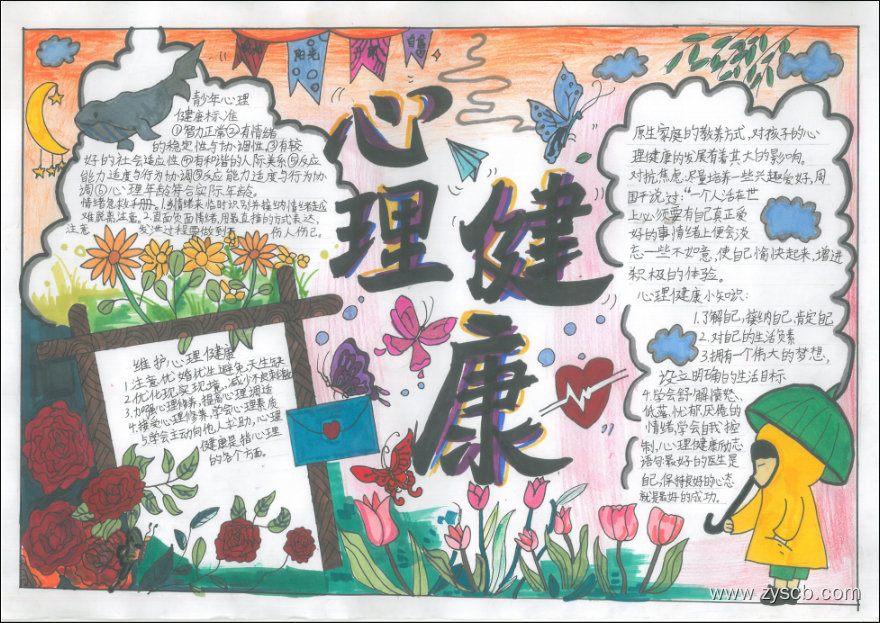 阳光
开朗
自信
心理健康
青少年心理
健康标准
①智力正常②有情绪
的稳定性与协调性③有较
好的社会适应性④有和谐的人际关系⑤反应
能力适度与行为协调⑤反应能力适度与行为协
调⑥心理年龄符合实际年龄。
情绪急救手册。1.当情绪来临时识别并接纳情绪造成
难脱离注意。2.直面负面情绪,用最直接的方式表达,
注意 发泄过程要做到不 伤人伤己。
维护心理健康
1.注意优婚优生避免天生缺
2.优化现实现境,减少不良刺激
3.加强心理修养,提高心理调适
4.接受心理修养,学会心理素质
与学会主动向他人求助,心理
健康是指心理
的各个方面。
原生家庭的教养方式,对孩子的心
理健康的发展有着其大的影响。
对抗焦虑,尽量培养一些兴趣爱好,周
国平说过:“一个人活在世
上必须要有自己真正爱
好的事情绪上便会淡
忘一些不如意,使自己愉快起来,增进
积极的体验。
心理健康小知识:
1.了解自己,接纳自己,肯定自己
2.对自己的生活负素
3.拥有一个伟大的梦想,
设立明确的生活目标
4.学会舒解愤怒、
低落、忧郁、厌倦的
情绪,学会自我控
制,心理健康励志
语句最好的医生是
自己,保持良好的心态
就是最好的成功。
www.zyscb.com